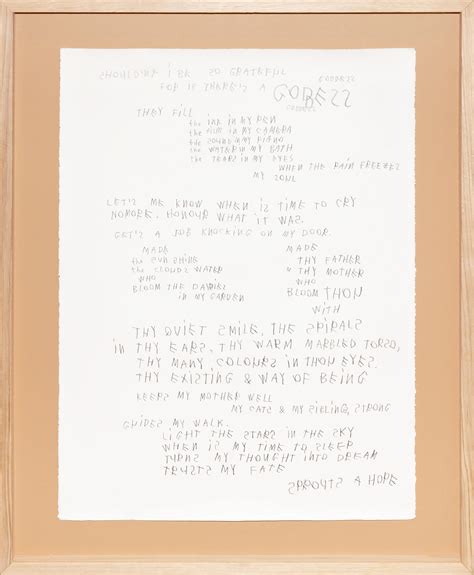 SHOULDN'T i BE SO GRATEFUL
GODDESS
FOR iF THERE'S A GODDESS
GODDESS
THEY FiLL
the iNK iN MY PEN
the FiLM iN MY CAMERA
the SOUND iN MY PiANO
the WATER iN MY BATH
the TEARS iN MY EYES
WHEN THE RAiN FREEZES
MY SOUL
LET'S ME KNOW WHEN iS TiME TO CRY
NOMORE. HONOUR WHAT iT WAS.
GET'S A JOB KNOCKiNG ON MY DOOR.
MADE MADE
the SUN SHiNE THY FATHER
the CLOUDS WATER & THY MOTHER
WHO WHO
BLOOM THE DAiSiES BLOOM THOU
iN MY GARDEN WiTH
THY QUiET SMiLE, THE SPiRALS
iN THY EARS, THY WARM MARBLED TORSO,
THY MANY COLOURS iN THOU EYES.
THY EXiSTiNG & WAY OF BEiNG
KEEPS MY MOTHER WELL
MY CATS & MY SiBLiNG, STRONG
GUiDES MY WALK.
LiGHT THE STARS iN THE SKY
WHEN iS MY TiME TO SLEEP
TURNS MY THOUGHT iNTO DREAM
TRUSTS MY FATE
SPROUTS A HOPE